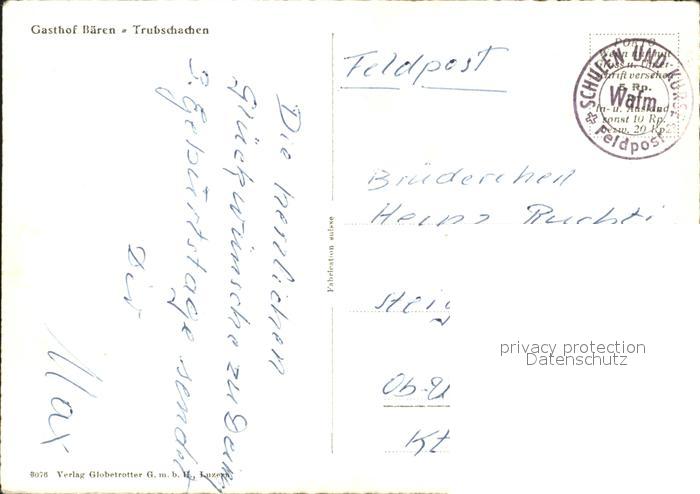 Gasthof Bären - Trubschachen
Die herzlichen
Glückwünsche zu Deinem
3. Geburtstage sendet
Dir
Max
8076 Verlag Globetrotter G. m. b. H., Luzern
Fabrication suisse
Feldpost
PORTO
5 Rp.
In- u. Ausland
sonst 10 Rp.
bezw. 20 Rp.
SCHULEN UND KURSE
Wafm.
Feldpost
Brüderchen
Heinz Ruchti
Steig
Ob-U
Kt
privacy protection
Datenschutz